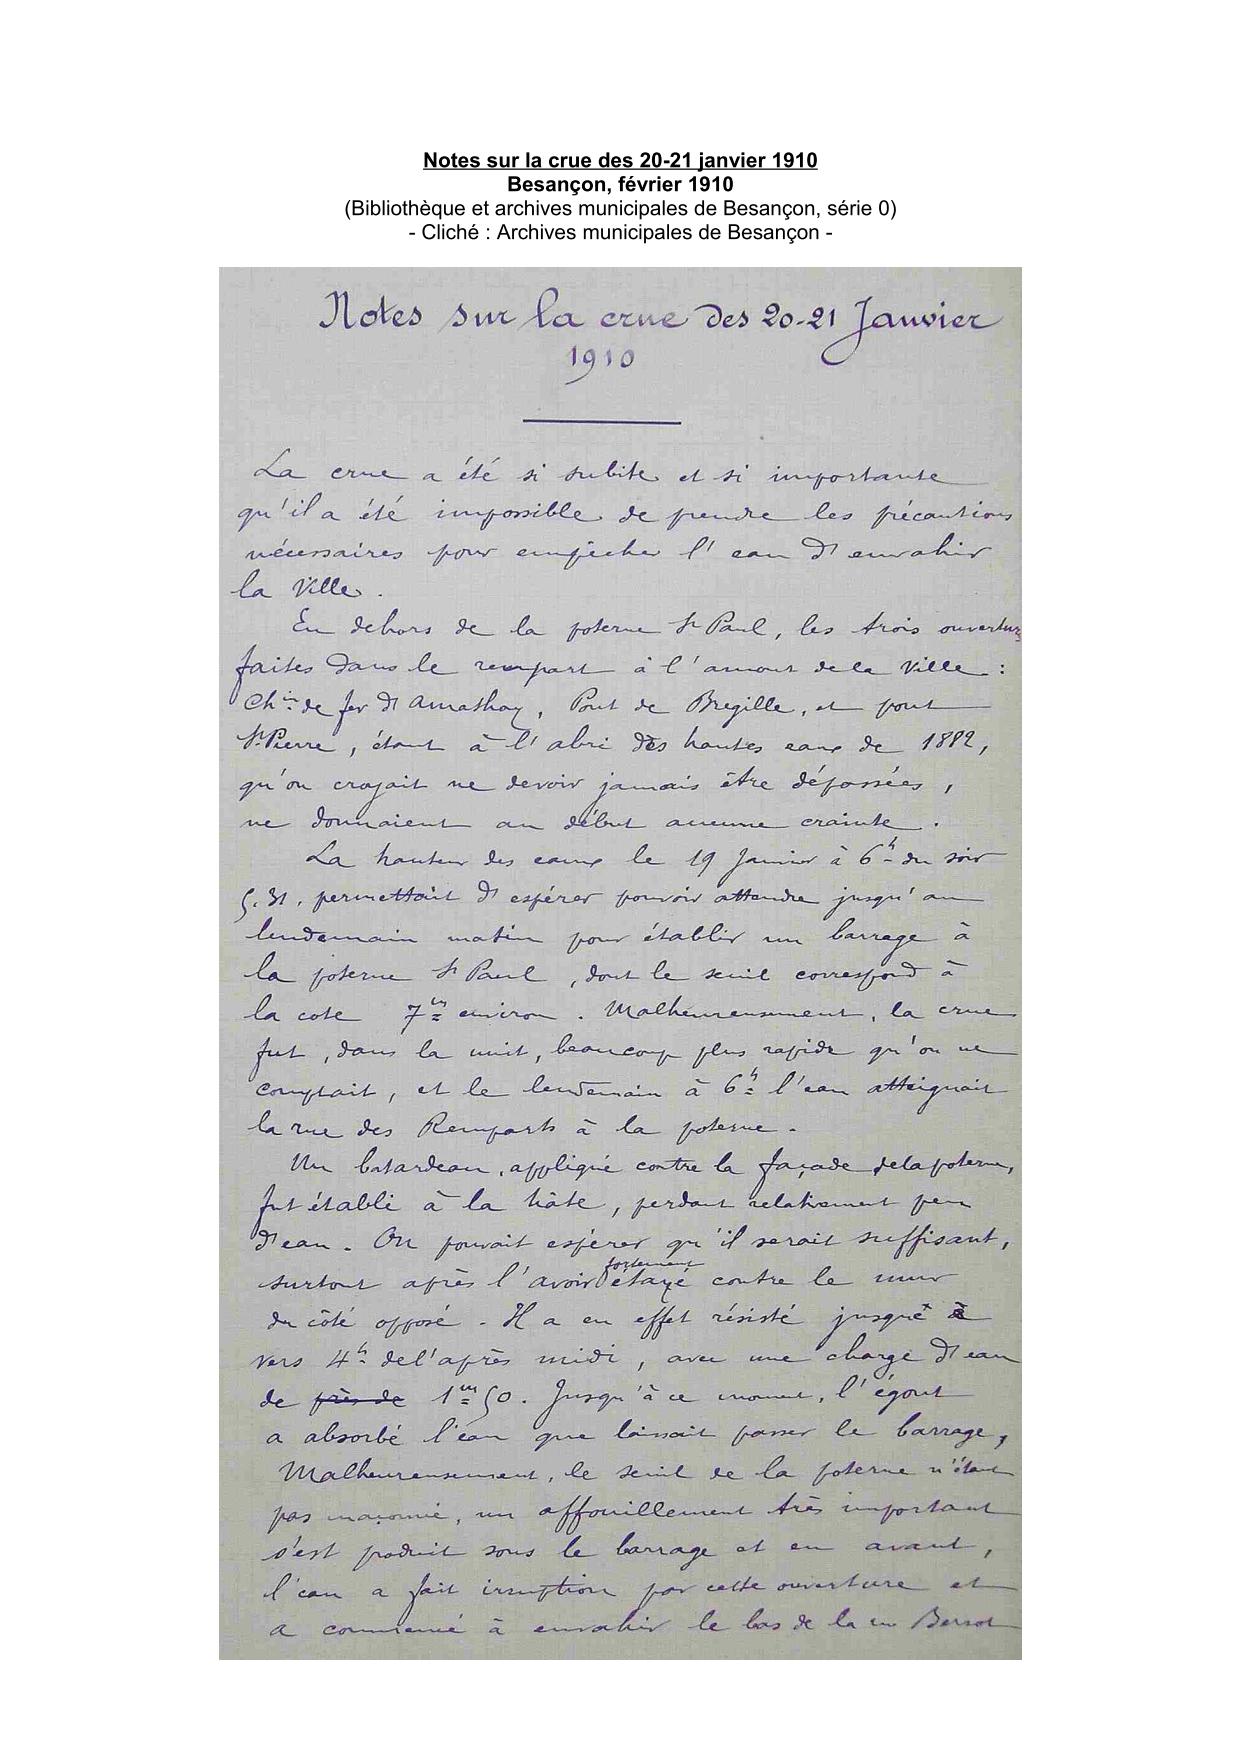 Notes sur la crue des 20-21 janvier 1910
Besançon, février 1910
(Bibliothèque et archives municipales de Besançon, série 0)
- Cliché : Archives municipales de Besançon -
Notes sur la crue des 20-21 Janvier
1910
La crue a été si subite et si importante
qu'il a été impossible de prendre les précautions
nécessaires pour empêcher l'eau d'envahir
la Ville.
En dehors de la poterne St Paul, les trois ouvertures
faites dans le rempart à l'amont de la Ville :
Chin de fer d'Amathay, Pont de Bregille, et pont
St Pierre, étant à l'abri des hautes eaux de 1882,
qu'on croyait ne devoir jamais être dépassées,
ne donnaient au début aucune crainte.
La hauteur des eaux le 19 Janvier à 6h du soir
5.31. permettait d'espérer pouvoir attendre jusqu'au
lendemain matin pour établir un barrage à
la poterne St Paul, dont le seuil correspond à
la cote 7m environ. Malheureusement, la crue
fut, dans la nuit, beaucoup plus rapide qu'on ne
comptait, et le lendemain à 6h l'eau atteignait
la rue des Remparts à la poterne.
Un batardeau, appliqué contre la façade de la poterne,
fut établi à la hâte, perdant relativement peu
d'eau. On pouvait espérer qu'il serait suffisant,
surtout après l'avoir fortement étayé contre le mur
du côté opposé. Il a en effet résisté jusque
vers 4h de l'après midi, avec une charge d'eau
de près de 1m50. Jusqu'à ce moment, l'égout
a absorbé l'eau que laissait passer le barrage,
Malheureusement, le seuil de la poterne n'étant
pas maçonné, un affouillement très important
s'est produit sous le barrage et en avant,
l'eau a fait irruption par cette ouverture et
a commencé à envahir le bas de la rue Bersot